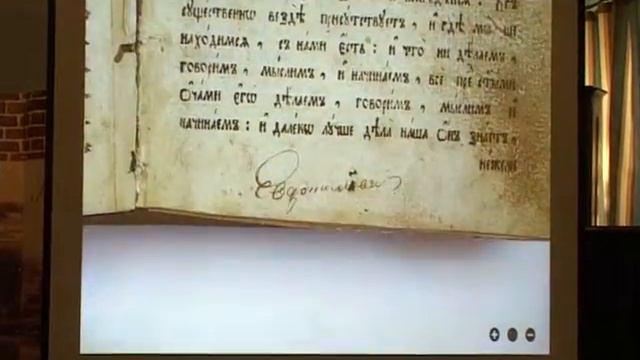 существеннѡ вездѣ присутствуетъ, и гдѣ мы ни
находимся, съ нами єсть: и что ни дѣлаемъ,
говоримъ, мыслимъ, и начинаемъ, все пре
Ѻчами єгѡ дѣлаемъ, говоримъ, мыслимъ и
начинаемъ: и далекѡ лучше дѣла наша Ѻнъ знаетъ,
нежели